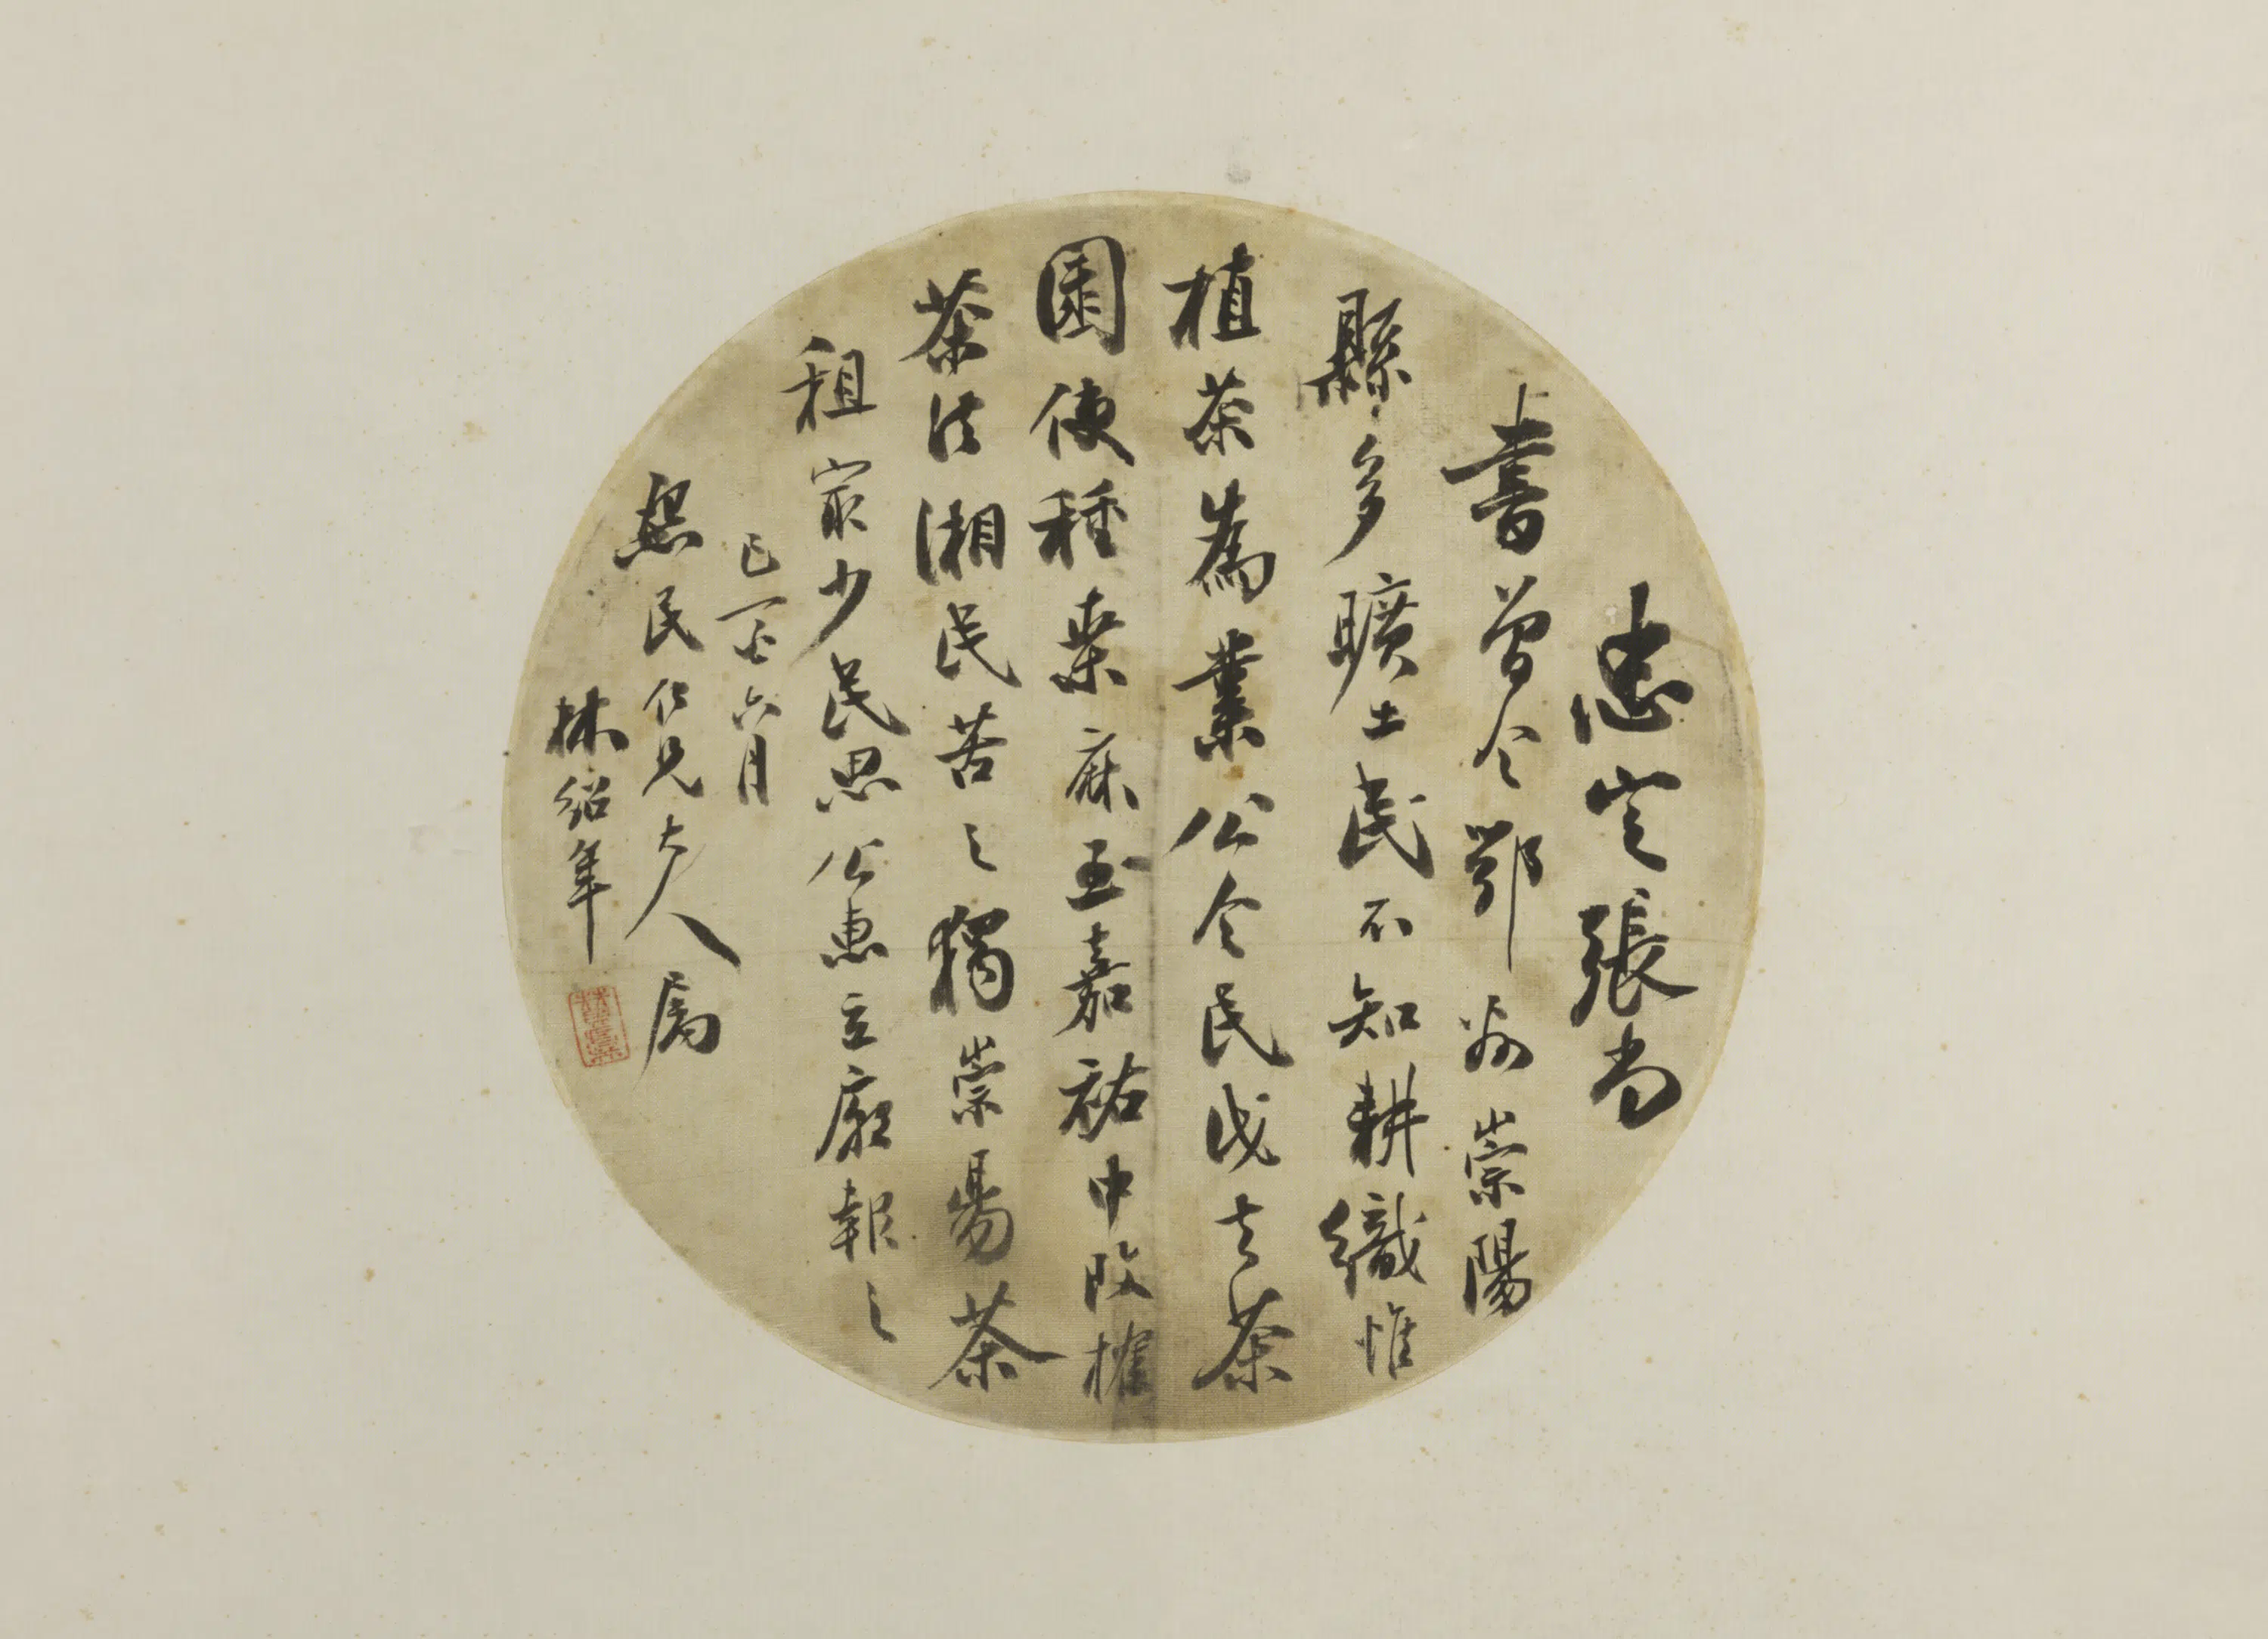 忠定張尚
書曾令鄂州崇陽
縣多曠土民不知耕織惟
植茶為業公令民伐去茶
園使種桑麻至嘉祐中改榷
茶法湘民苦之獨崇昜茶
租冣少民思公惠立廟報之
己酉六月
熙民仁兄大人屬
林紹年